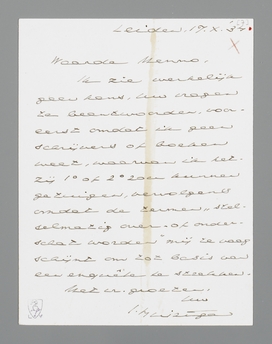 Leiden, 17.X.34
Waarde Menno,
Ik zie werkelijk
geen kans, uw vragen
te beantwoorden, voor-
eerst omdat ik geen
schrijvers of boeken
weet, waarvan ik het-
zij 1° of 2° zou kunnen
getuigen, vervolgens
omdat de termen „stel-
selmatig over- of onder-
schat worden" mij te vaag
schijnt om tot basis van
een enquête te strekken.
Met vr. groeten,
Uw
J. Huizinga